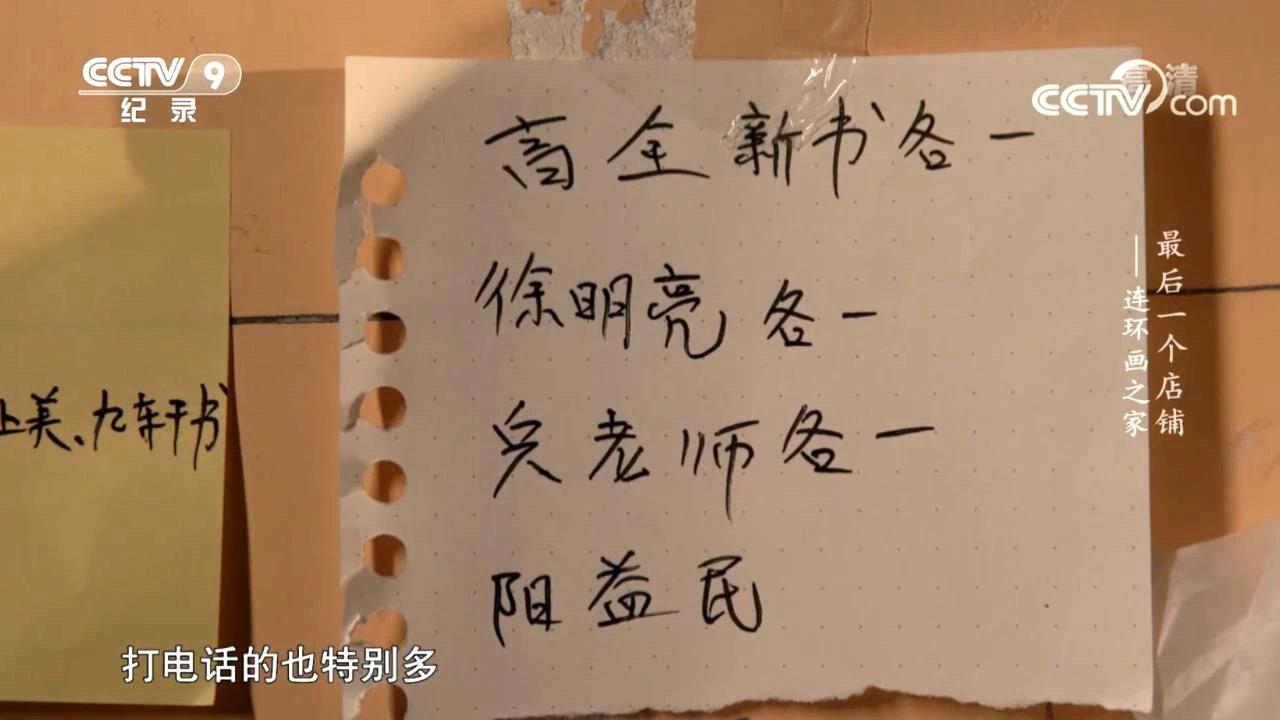 CCTV 9
纪录
高清
CCTV.com
高全新书各一
徐明亮各一
吴老师各一
阳益民
上美、九轩书
最后一个店铺
——连环画之家
打电话的也特别多